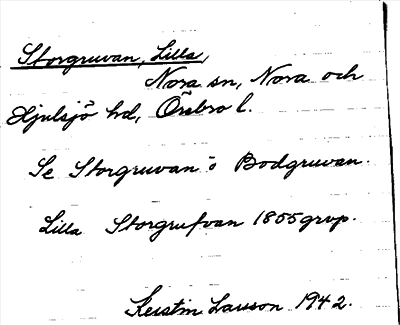 Storgruvan, Lilla,
Nora sn, Nora och
Hjulsjö hd, Örebro l.
Se Storgruvan o Bodgruvan.
Lilla Storgrufvan 1855 grvp.
Kerstin Larsson 1942.